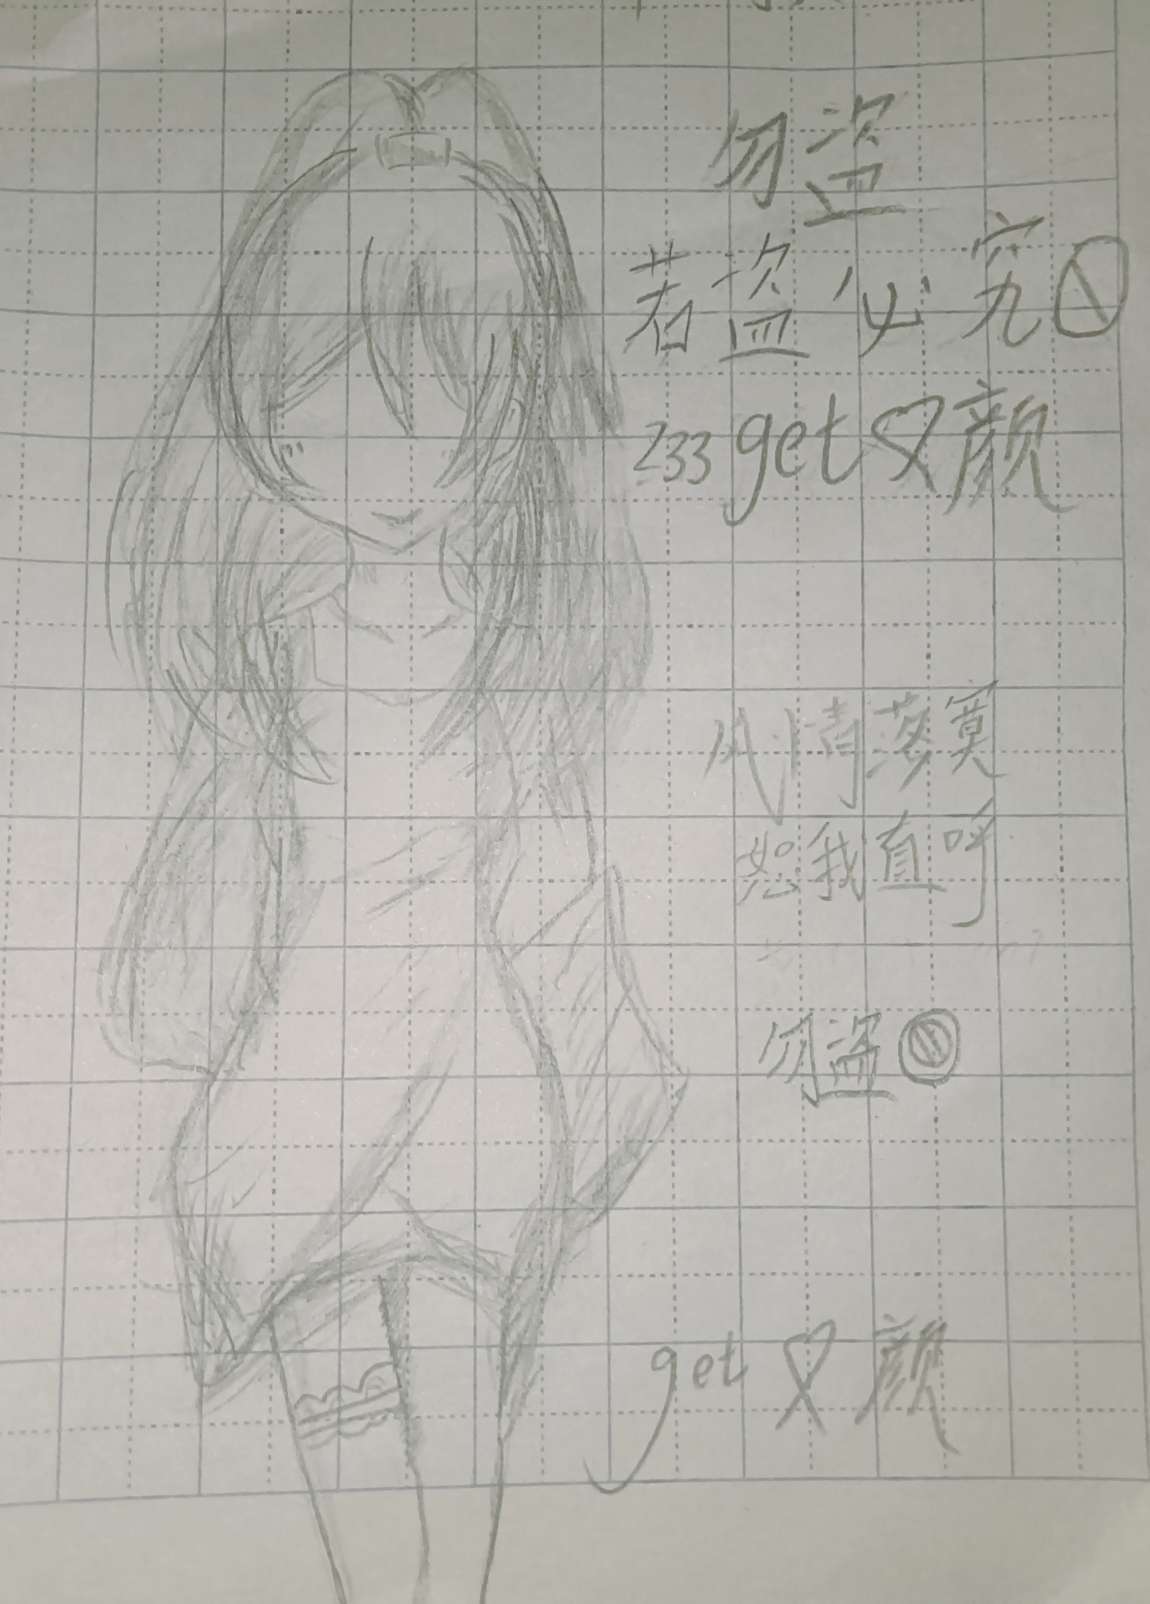 勿盗
若盗必究
233 get♡颜
风情落寞
恕我直呼
勿盗
get ♡ 颜